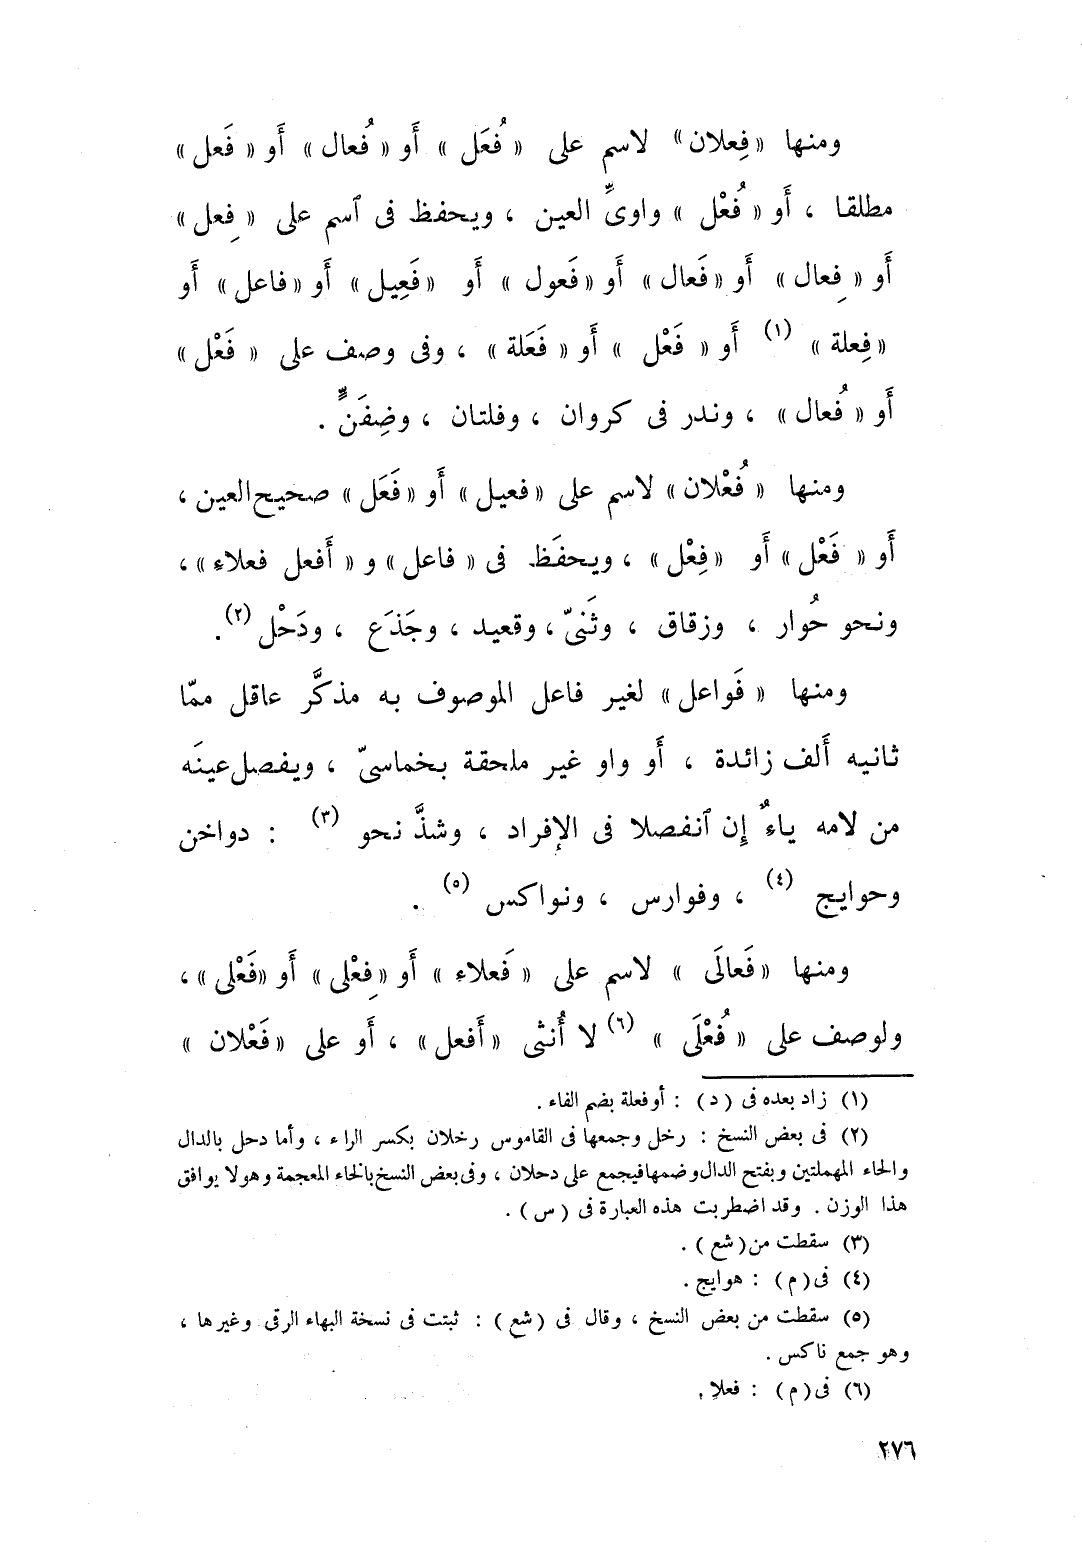 ومنها « فِعلان » لاسم على « فُعَل » أَو « فُعال » أَو « فَعل »
مطلقا ، أَو « فُعْل » واوىِّ العين ، ويحفظ فى ٱسم على « فِعل »
أَو « فِعال » أَو « فَعال » أَو « فَعول » أَو « فَعِيل » أَو « فاعل » أَو
« فِعلة » (١) أَو « فَعْل » أَو « فَعَلة » ، وفى وصف على « فَعْل »
أَو « فُعال » ، وندر فى كروان ، وفلتان ، وضِفَنٍّ .
ومنها « فُعْلان » لاسم على « فعيل » أَو « فَعَل » صحيح العين ،
أَو « فَعْل » أَو « فِعْل » ، ويحفَظ فى « فاعل » و « أَفعل فعلاء » ،
ونحو حُوار ، وزقاق ، وثَنىّ ، وقعيد ، وجَذَع ، ودَحْل (٢) .
ومنها « فَواعل » لغير فاعل الموصوف به مذكَّر عاقل ممّا
ثانيه أَلف زائدة ، أَو واو غير ملحقة بخماسىّ ، ويفصل عينَه
من لامه ياءٌ إِن ٱنفصلا فى الإفراد ، وشذَّ نحو (٣) : دواخن
وحوايج (٤) ، وفوارس ، ونواكس (٥) .
ومنها « فَعالَى » لاسم على « فَعلاء » أَو « فِعْلى » أَو « فَعْلى » ،
ولوصف على « فُعْلَى » (٦) لا أُنثى « أَفعل » ، أَو على « فَعْلان »
(١) زاد بعده فى (د) : أو فعلة بضم الفاء .
(٢) فى بعض النسخ : رخل وجمعها فى القاموس رخلان بكسر الراء ، وأما دحل بالدال
والحاء المهملتين وبفتح الدال وضمها فيجمع على دحلان ، وفى بعض النسخ بالخاء المعجمة وهو لا يوافق
هذا الوزن . وقد اضطربت هذه العبارة فى (س) .
(٣) سقطت من (شع) .
(٤) فى (م) : هوايج .
(٥) سقطت من بعض النسخ ، وقال فى (شع) : ثبتت فى نسخة البهاء الرقى وغيرها ،
وهو جمع ناكس .
(٦) فى (م) : فعلا .
٢٧٦